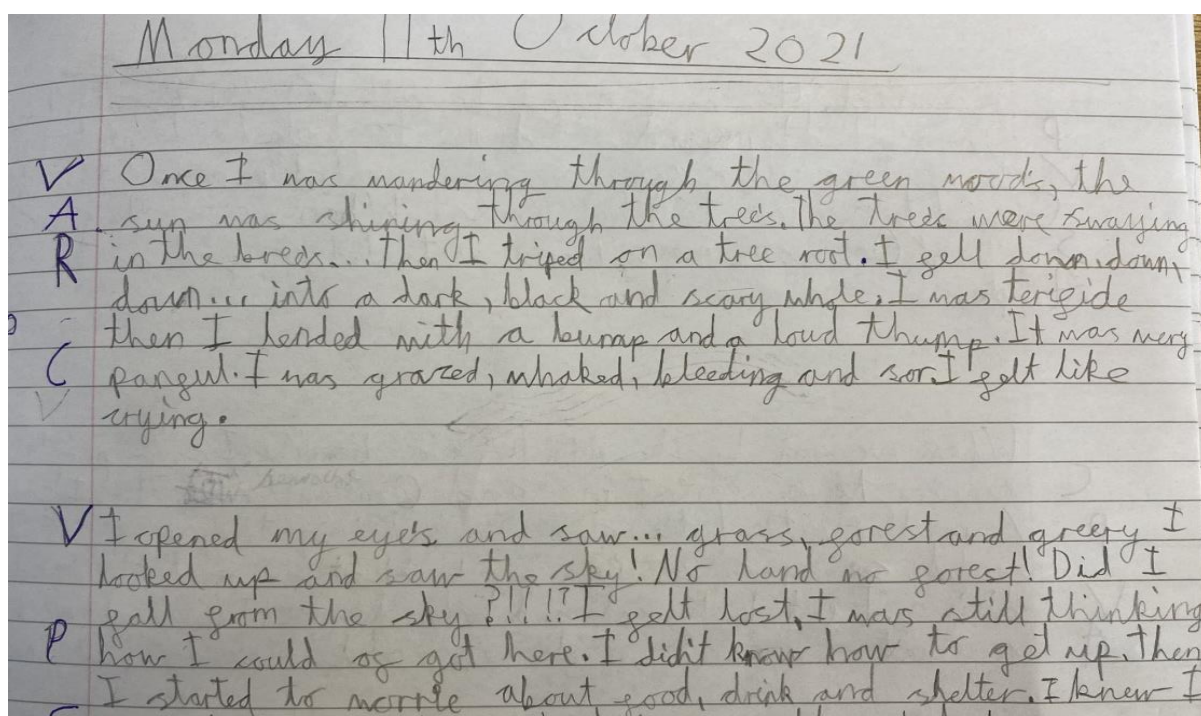 Monday 11th October 2021
V Once I was wandering through the green woods, the
A sun was shining through the trees. The trees were swaying
R in the brees... Then I triped on a tree root. I fell down, down,
down... into a dark, black and scary whole. I was terifide
then I landed with a bump and a loud thump. It was very
C panful. I was grazed, whaked, bleeding and sor. I felt like
V crying.
V I opened my eye's and saw... grass, forest and greery I
looked up and saw the sky! No land no forest! Did I
fall from the sky?!?!!? I felt lost, I was still thinking
P how I could of got here. I didn't know how to get up. Then
I started to worrie about food, drink and shelter. I knew I